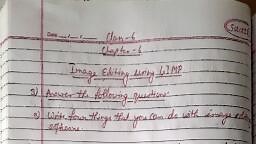 Date __/__/__ Class-6
Chapter-6
Image Editing using GIMP
3) Answer the following questions:
a) Write four things that you can do with image
software.